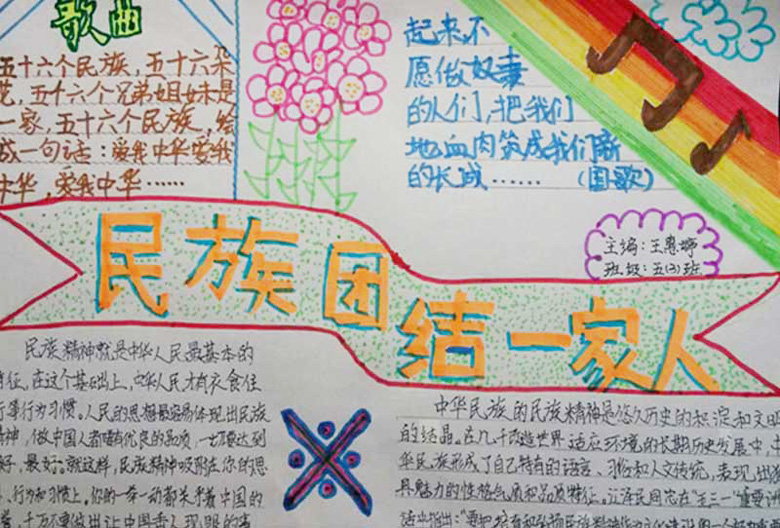 歌曲
五十六个民族,五十六朵
花,五十六个兄弟姐妹是
一家,五十六个民族,绘
成一句话:爱我中华爱我
中华,爱我中华……
起来不
愿做奴隶
的人们,把我们
地血肉筑成我们新
的长城……(国歌)
主编:王惠婷
班级:五(3)班
民族团结一家人
民族精神就是中华人民最基本的
特征,在这个基础上,中华人民才有衣食住
行等行为习惯。人民的思想最容易体现出民族
精神,做中国人者唯有优良的品质,一切要达到
好,最好。就这样,民族精神吸附在你的思
、行为和习惯上,你的一举一动都关乎着中国的
千万不要做出让中国人现眼的事
中华民族的民族精神是悠久历史的积淀和文明
的结晶。在几千改造世界、适应环境的长期历史发展中,中
华民族形成了自己特有的语言、习俗和人文传统,表现出
具魅力的性格气质和品质特征。江泽民同志在"七一"重要讲
话出指出:"要把